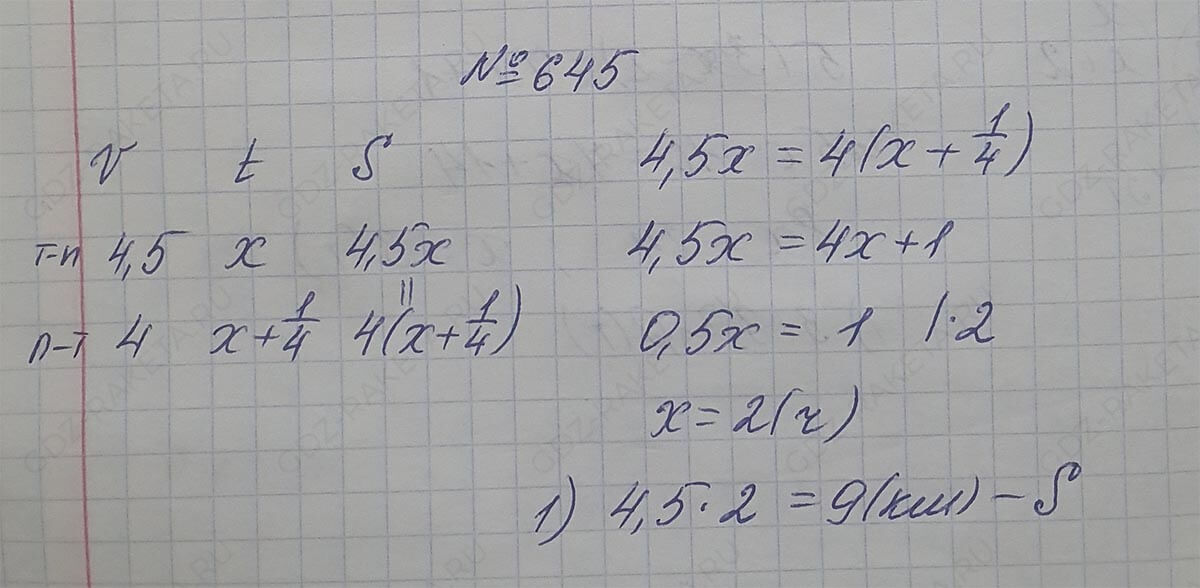 №645
v t S
т-п 4,5 x 4,5x
||
п-т 4 x+1/4 4(x+1/4)
4,5x = 4(x+1/4)
4,5x = 4x+1
0,5x = 1 |·2
x = 2(ч)
1) 4,5·2 = 9(км) – S
GDZ-RAKETA.RU